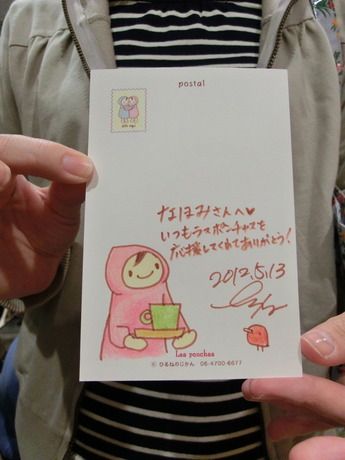 postal
なほみさんへ♥
いつもラスポンチャスを
応援してくれてありがとう!
2012.5.13
Las ponchas
© ひるねのじかん 06-4700-6677